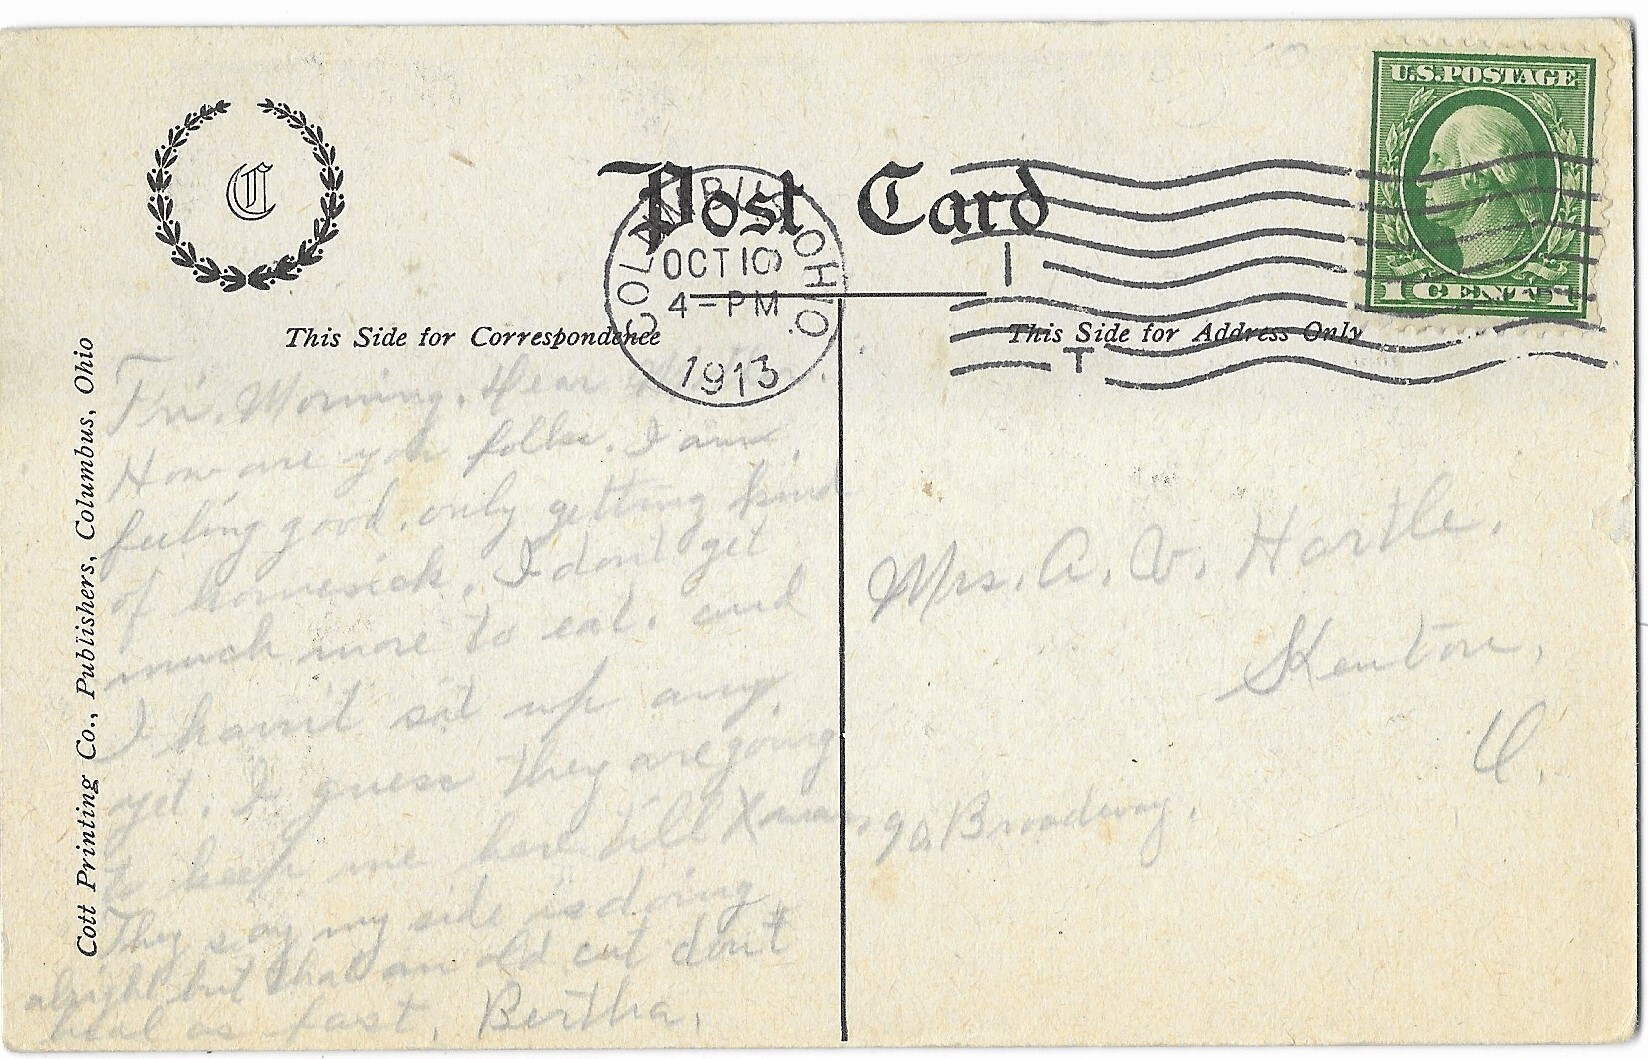 U.S. POSTAGE
1 CENT 1
C
Post Card
COLUMBUS, OHIO.
OCT 10
4-PM
1913
This Side for Correspondence
This Side for Address Only
Cott Printing Co., Publishers, Columbus, Ohio
Fri. Morning. Dear
How are you folks. I am
feeling good, only getting kind
of homesick. I don't get
much more to eat. and
I havn't sat up any
yet. I guess they are going
to keep me here till Xmas
They say my side is doing
alright but that an old cut don't
heal as fast. Bertha.
Mrs. A. V. Hartle.
Kenton,
O.
Broadway.